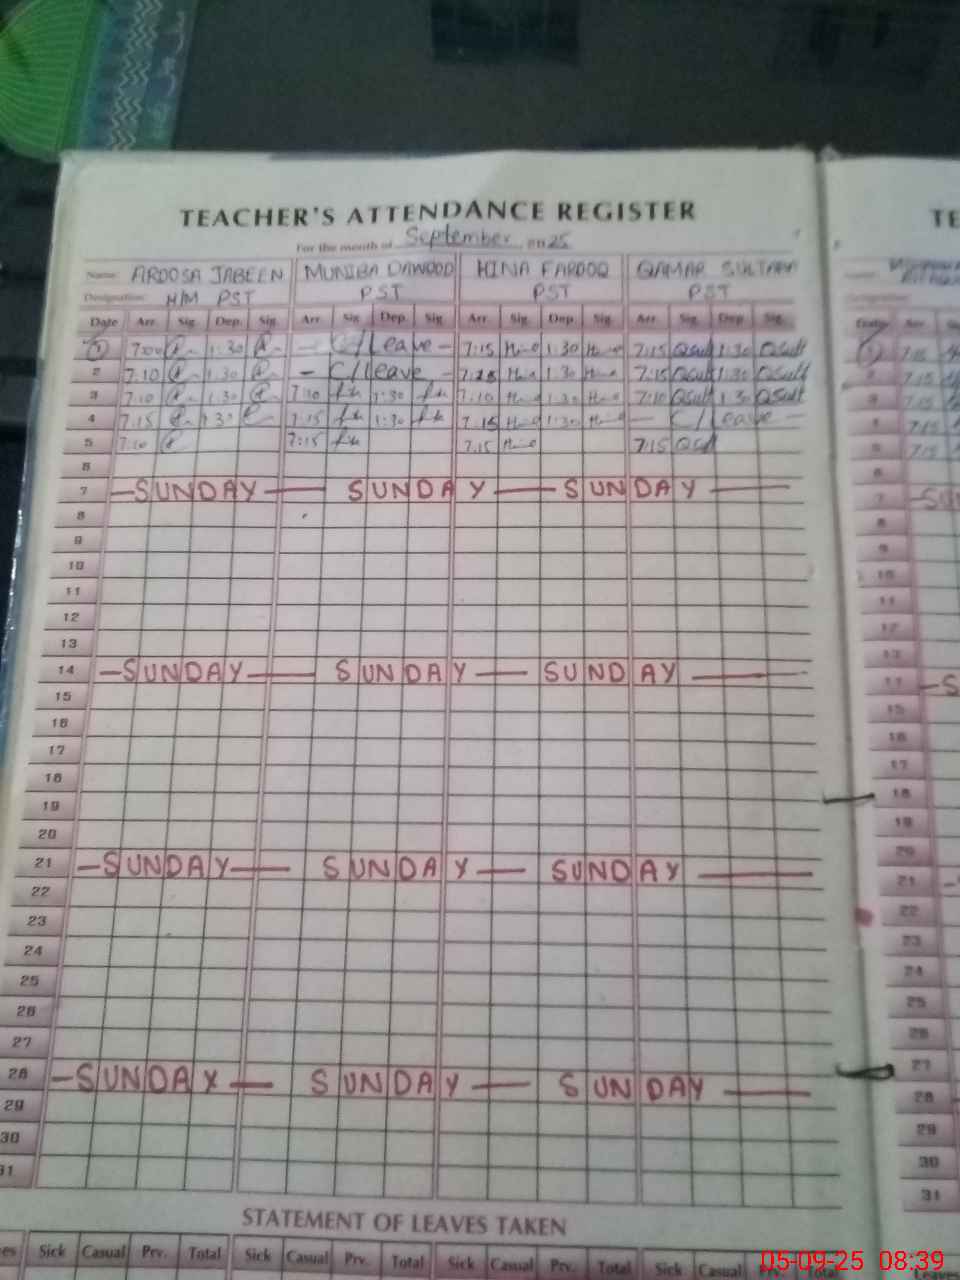 TEACHER'S ATTENDANCE REGISTER
For the month of September 2025
Name: AROOSA JABEEN MUNIBA DAWOOD HINA FAROOQ QAMAR SULTANA
Designation: H/M PST PST PST PST
Date Arr. Sig. Dep. Sig. Arr. Sig. Dep. Sig. Arr. Sig. Dep. Sig. Arr. Sig. Dep. Sig.
1 7:00 1:30 - C/Leave - 7:15 1:30 7:15 1:30
2 7:10 1:30 - C/Leave - 1:30 7:15 1:30
3 7:10 1:30 7:10 1:30 7:10 1:30 7:10 1:30
4 7:15 1:30 7:15 1:30 7:15 1:30 - C/Leave -
5 7:10 7:15 7:15 7:15
6
7 -SUNDAY- SUNDAY - SUNDAY -
8
9
10
11
12
13
14 -SUNDAY- SUNDAY - SUNDAY -
15
16
17
18
19
20
21 -SUNDAY- SUNDAY - SUNDAY -
22
23
24
25
26
27
28 -SUNDAY- SUNDAY - SUNDAY -
29
30
31
STATEMENT OF LEAVES TAKEN
Sick Casual Prv. Total Sick Casual Prv. Total Sick Casual Prv. Total Sick Casual Prv. Total
TE
Date Arr.
1 7:15
2 7:15
3 7:15
4 7:15
5 7:15
6
7 -SU
8
9
10
11
12
13
-S
15
16
17
18
19
20
21
22
23
24
25
26
27
28
29
30
31
05-09-25 08:39